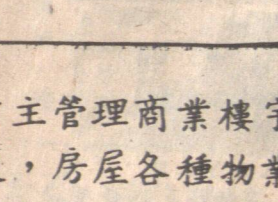 主管理商業樓宇
，房屋各種物業